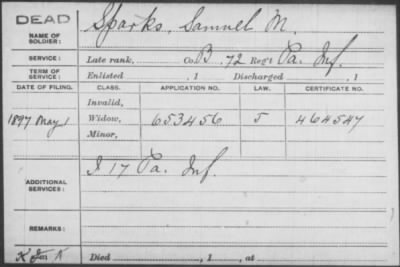 DEAD
NAME OF SOLDIER: Sparks, Samuel M.
SERVICE: Late rank, Co. B. 72 Reg't Pa. Inf.
TERM OF SERVICE: Enlisted , 1 Discharged , 1
DATE OF FILING. CLASS. APPLICATION NO. LAW. CERTIFICATE NO.
Invalid,
1897 May 1 Widow, 653456 J 464547
Minor,
ADDITIONAL SERVICES: I 17 Pa. Inf.
REMARKS:
Died , 1 , at